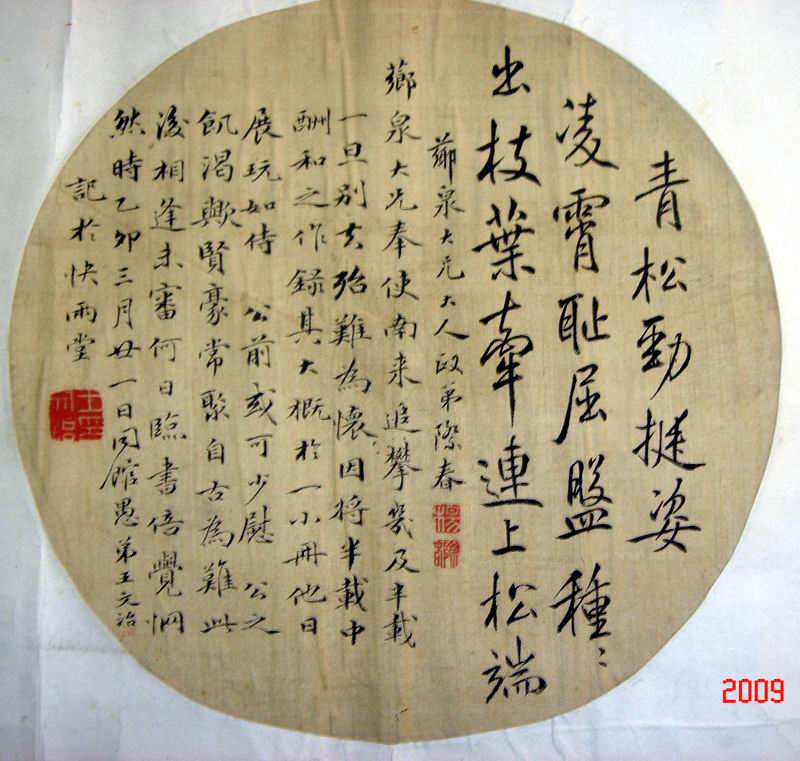 青松勁挺姿
凌霄恥屈盤種〻
出枝葉牽連上松端
薌泉大兄大人政弟際春
薌泉大兄奉使南来追攀幾及半載
一旦別去殆難為懷因將半載中
酬和之作録其大概於一小冊他日
展玩如侍 公前或可少慰 公之
飢渴歟賢豪常聚自古為難此
後相逢未審何日臨書倍覺惘
然時乙卯三月廿一日同館愚弟王文治
記於快雨堂
2009